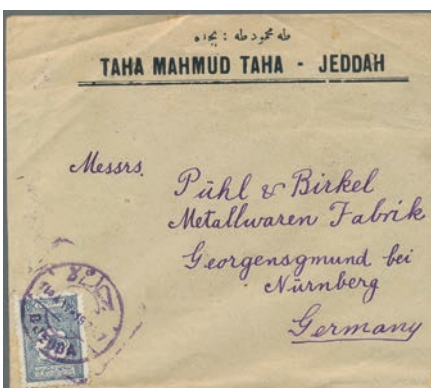 طه محمود طه : بجده
TAHA MAHMUD TAHA - JEDDAH
Messrs.
Pühl & Birkel
Metallwaren Fabrik
Georgensgmund bei
Nürnberg
Germany